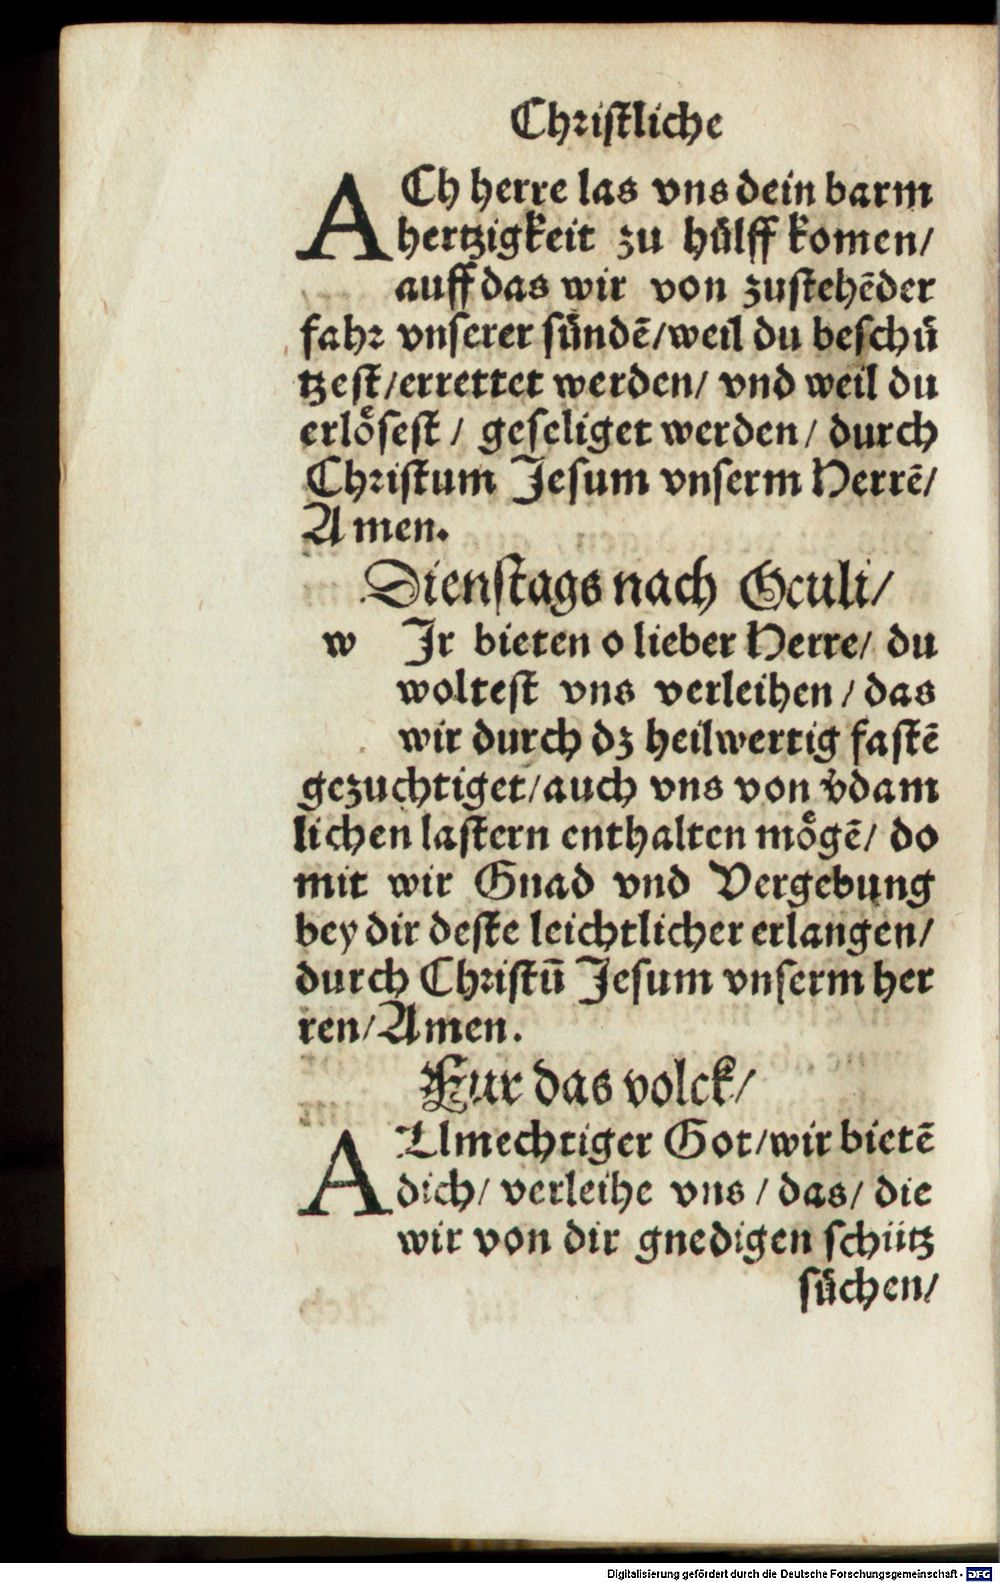 Christliche
ACh herre las vns dein barm
hertzigkeit zu hůlff komen/
auff das wir von zustehēder
fahr vnserer sůndē/weil du beschů
tzest/errettet werden/ vnd weil du
erlősest / geseliget werden/ durch
Christum Jesum vnserm Herrē/
Amen.
Dienstags nach Oculi/
wJr bieten o lieber Herre/ du
woltest vns verleihen / das
wir durch dz heilwertig fastē
gezuchtiget/auch vns von v̄dam
lichen lastern enthalten mőgē/ do
mit wir Gnad vnd Vergebung
bey dir deste leichtlicher erlangen/
durch Christū Jesum vnserm her
ren/Amen.
Fur das volck/
ALmechtiger Got/wir bietē
dich/ verleihe vns / das/ die
wir von dir gnedigen schütz
sůchen/
Digitalisierung gefördert durch die Deutsche Forschungsgemeinschaft - DFG